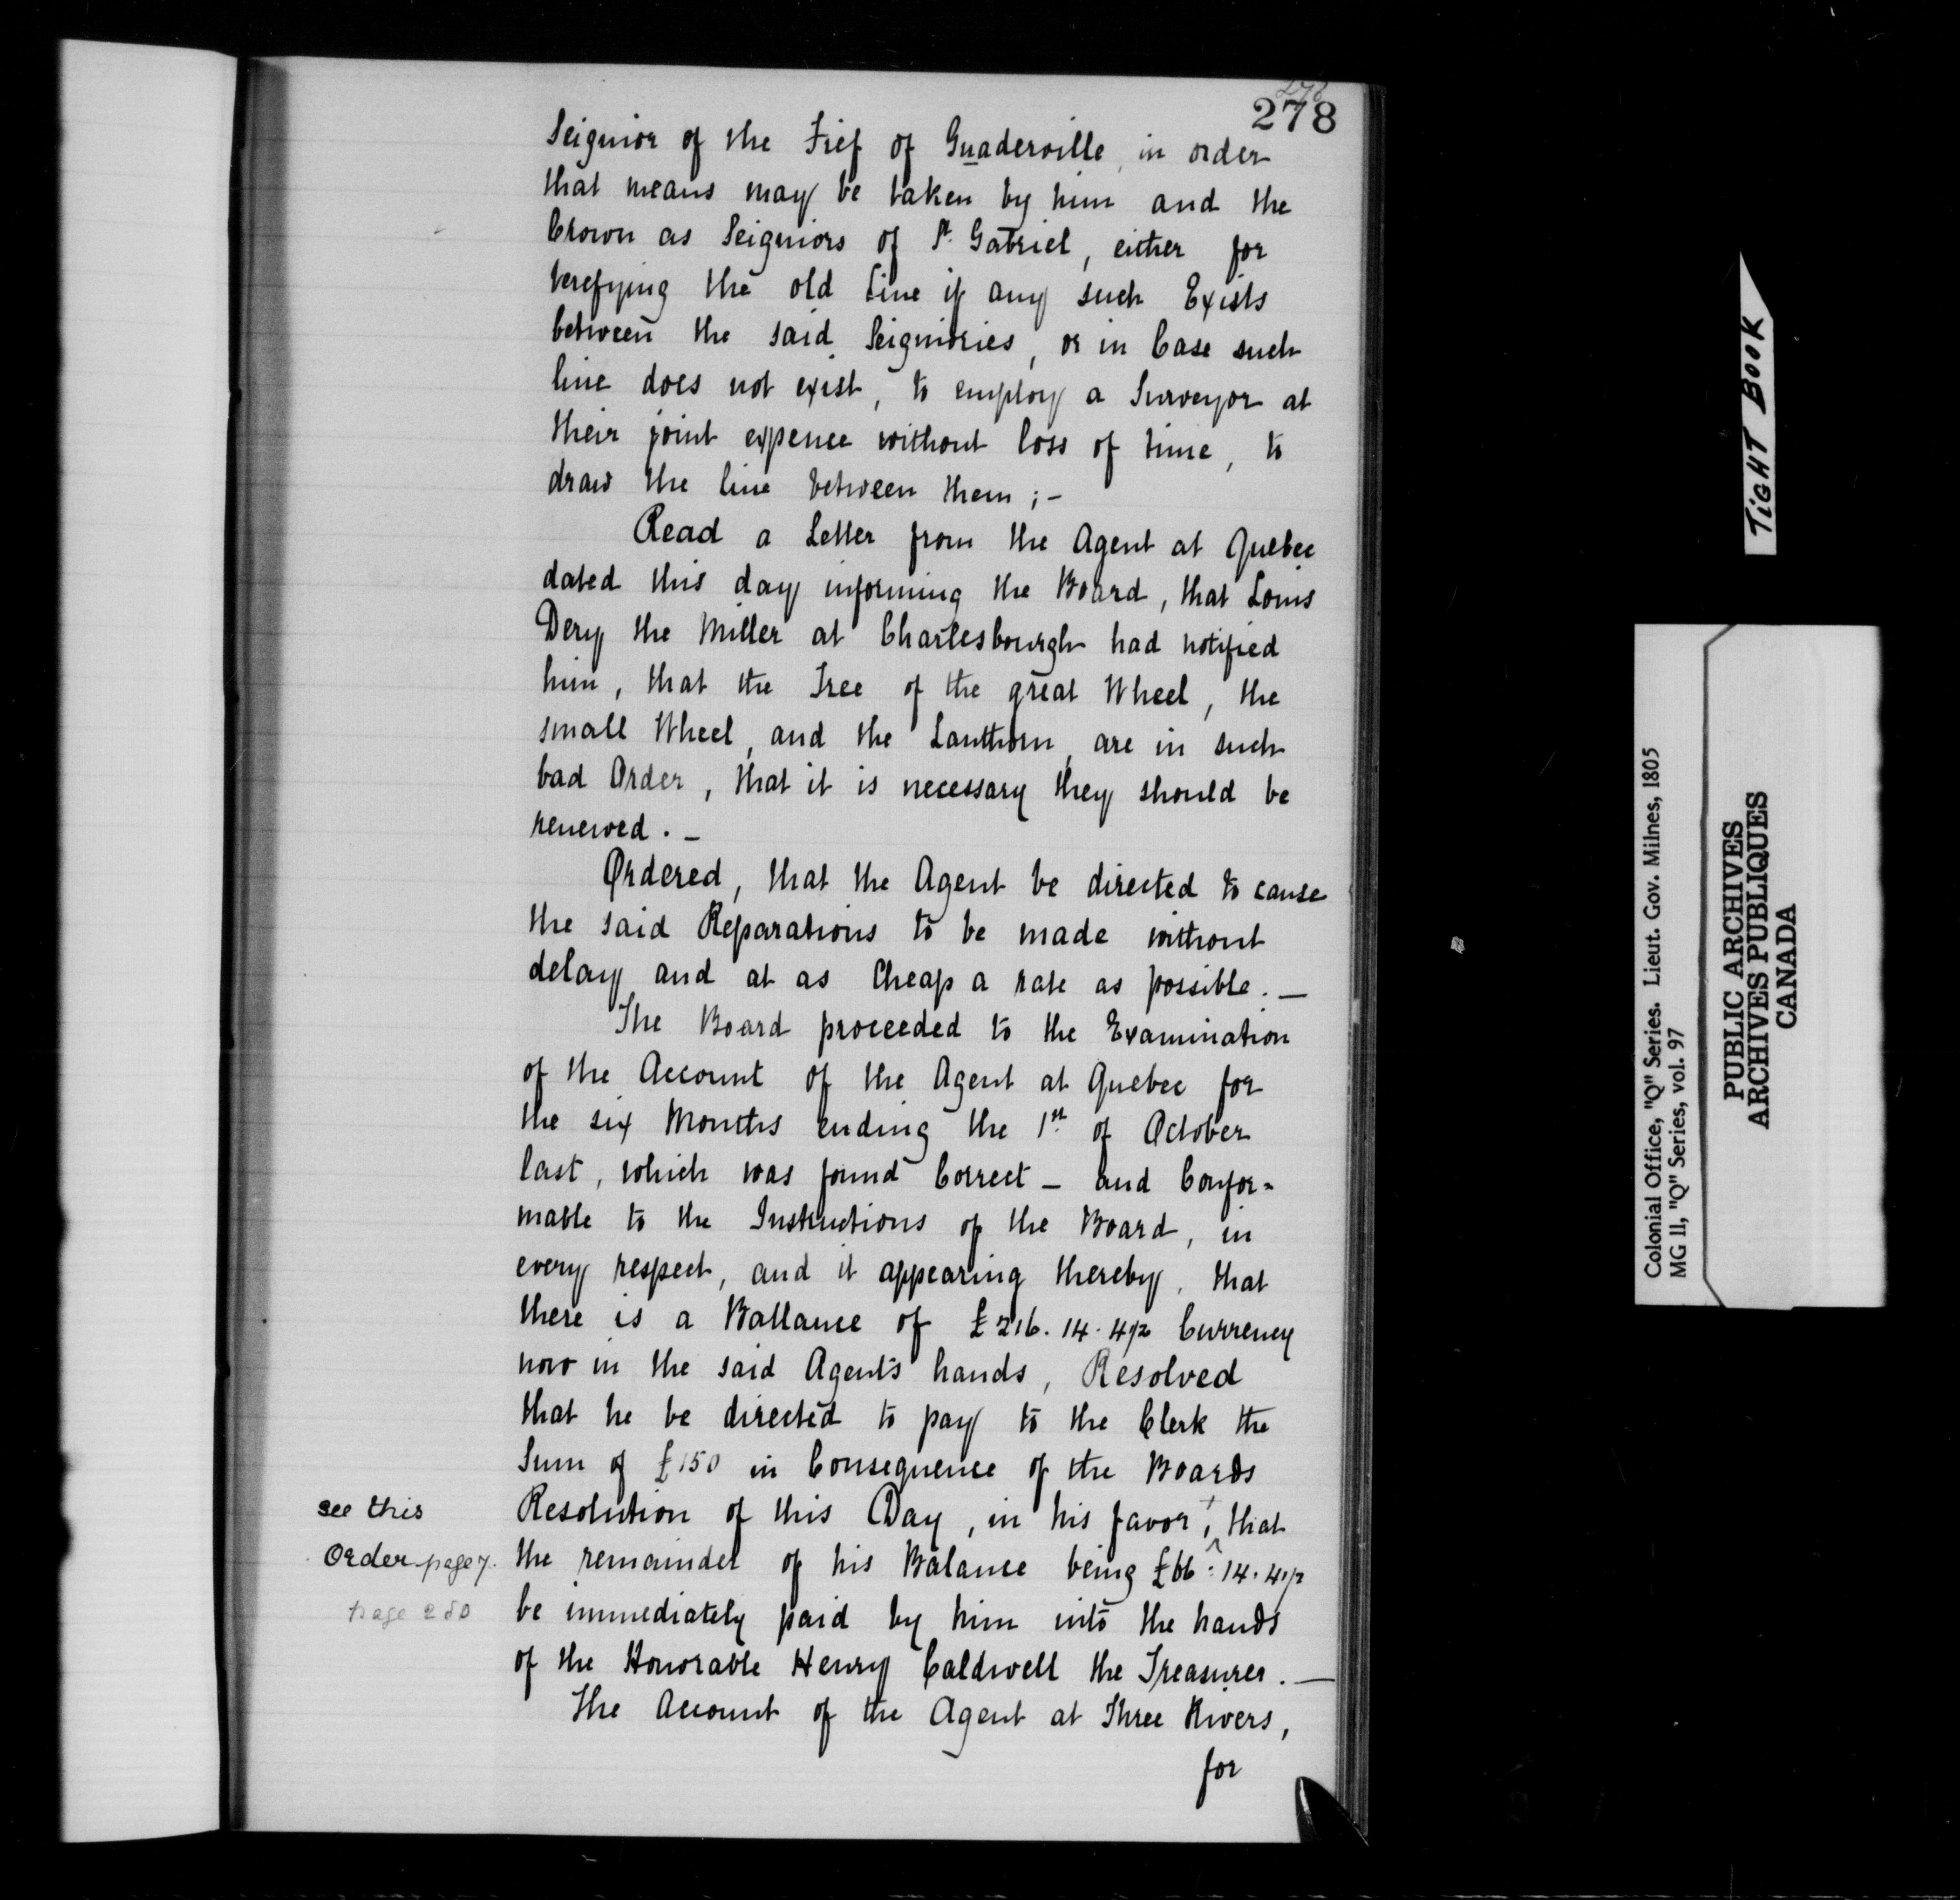 278
278
Seignior of the Fief of Guaderville, in order
that means may be taken by him and the
Crown as Seigniors of St. Gabriel, either for
verefying the old Line if any such Exists
between the said Seigniories, or in Case such
line does not exist, to employ a Surveyor at
their joint expence without loss of time, to
draw the line between them ; -
Read a Letter from the Agent at Quebec
dated this day informing the Board, that Louis
Dery the Miller at Charlesbourgh had notified
him, that the Tree of the great Wheel, the
small Wheel, and the Lanthorn, are in such
bad Order, that it is necessary they should be
renewed. -
Ordered, that the Agent be directed to cause
the said Reparations to be made without
delay and at as Cheap a rate as possible. -
The Board proceeded to the Examination
of the Account of the Agent at Quebec for
the six Months ending the 1st. of October
last, which was found Correct - and Confor=
mable to the Instructions of the Board, in
every respect, and it appearing thereby, that
there is a Ballance of £216. 14. 4 1/2 Currency
now in the said Agent's hands, Resolved
that he be directed to pay to the Clerk the
Sum of £150 in Consequence of the Boards
Resolution of this Day, in his favor +, that
the remainder of his Balance being £66 : 14. 4 1/2
be immediately paid by him into the hands
of the Honorable Henry Caldwell the Treasurer. -
The Account of the Agent at Three Rivers,
for
see this
Order page 7.
page 280
TIGHT BOOK
Colonial Office, "Q" Series. Lieut. Gov. Milnes, 1805
MG 11, "Q" Series, vol. 97
PUBLIC ARCHIVES
ARCHIVES PUBLIQUES
CANADA